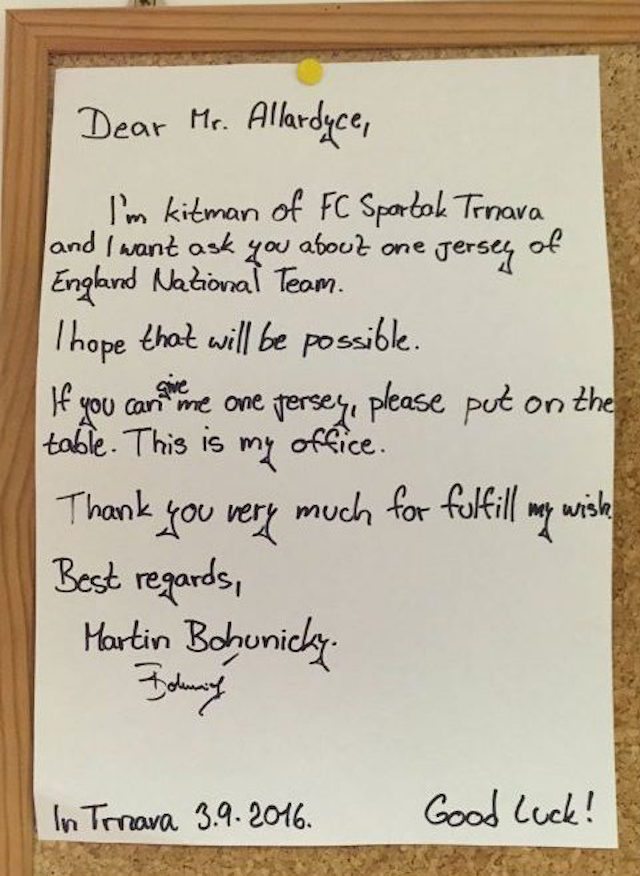 Dear Mr. Allardyce,
I'm kitman of FC Spartak Trnava
and I want ask you about one jersey of
England National Team.
I hope that will be possible.
If you can give me one jersey, please put on the
table. This is my office.
Thank you very much for fulfill my wish.
Best regards,
Martin Bohunicky.
In Trnava 3.9.2016. Good Luck!